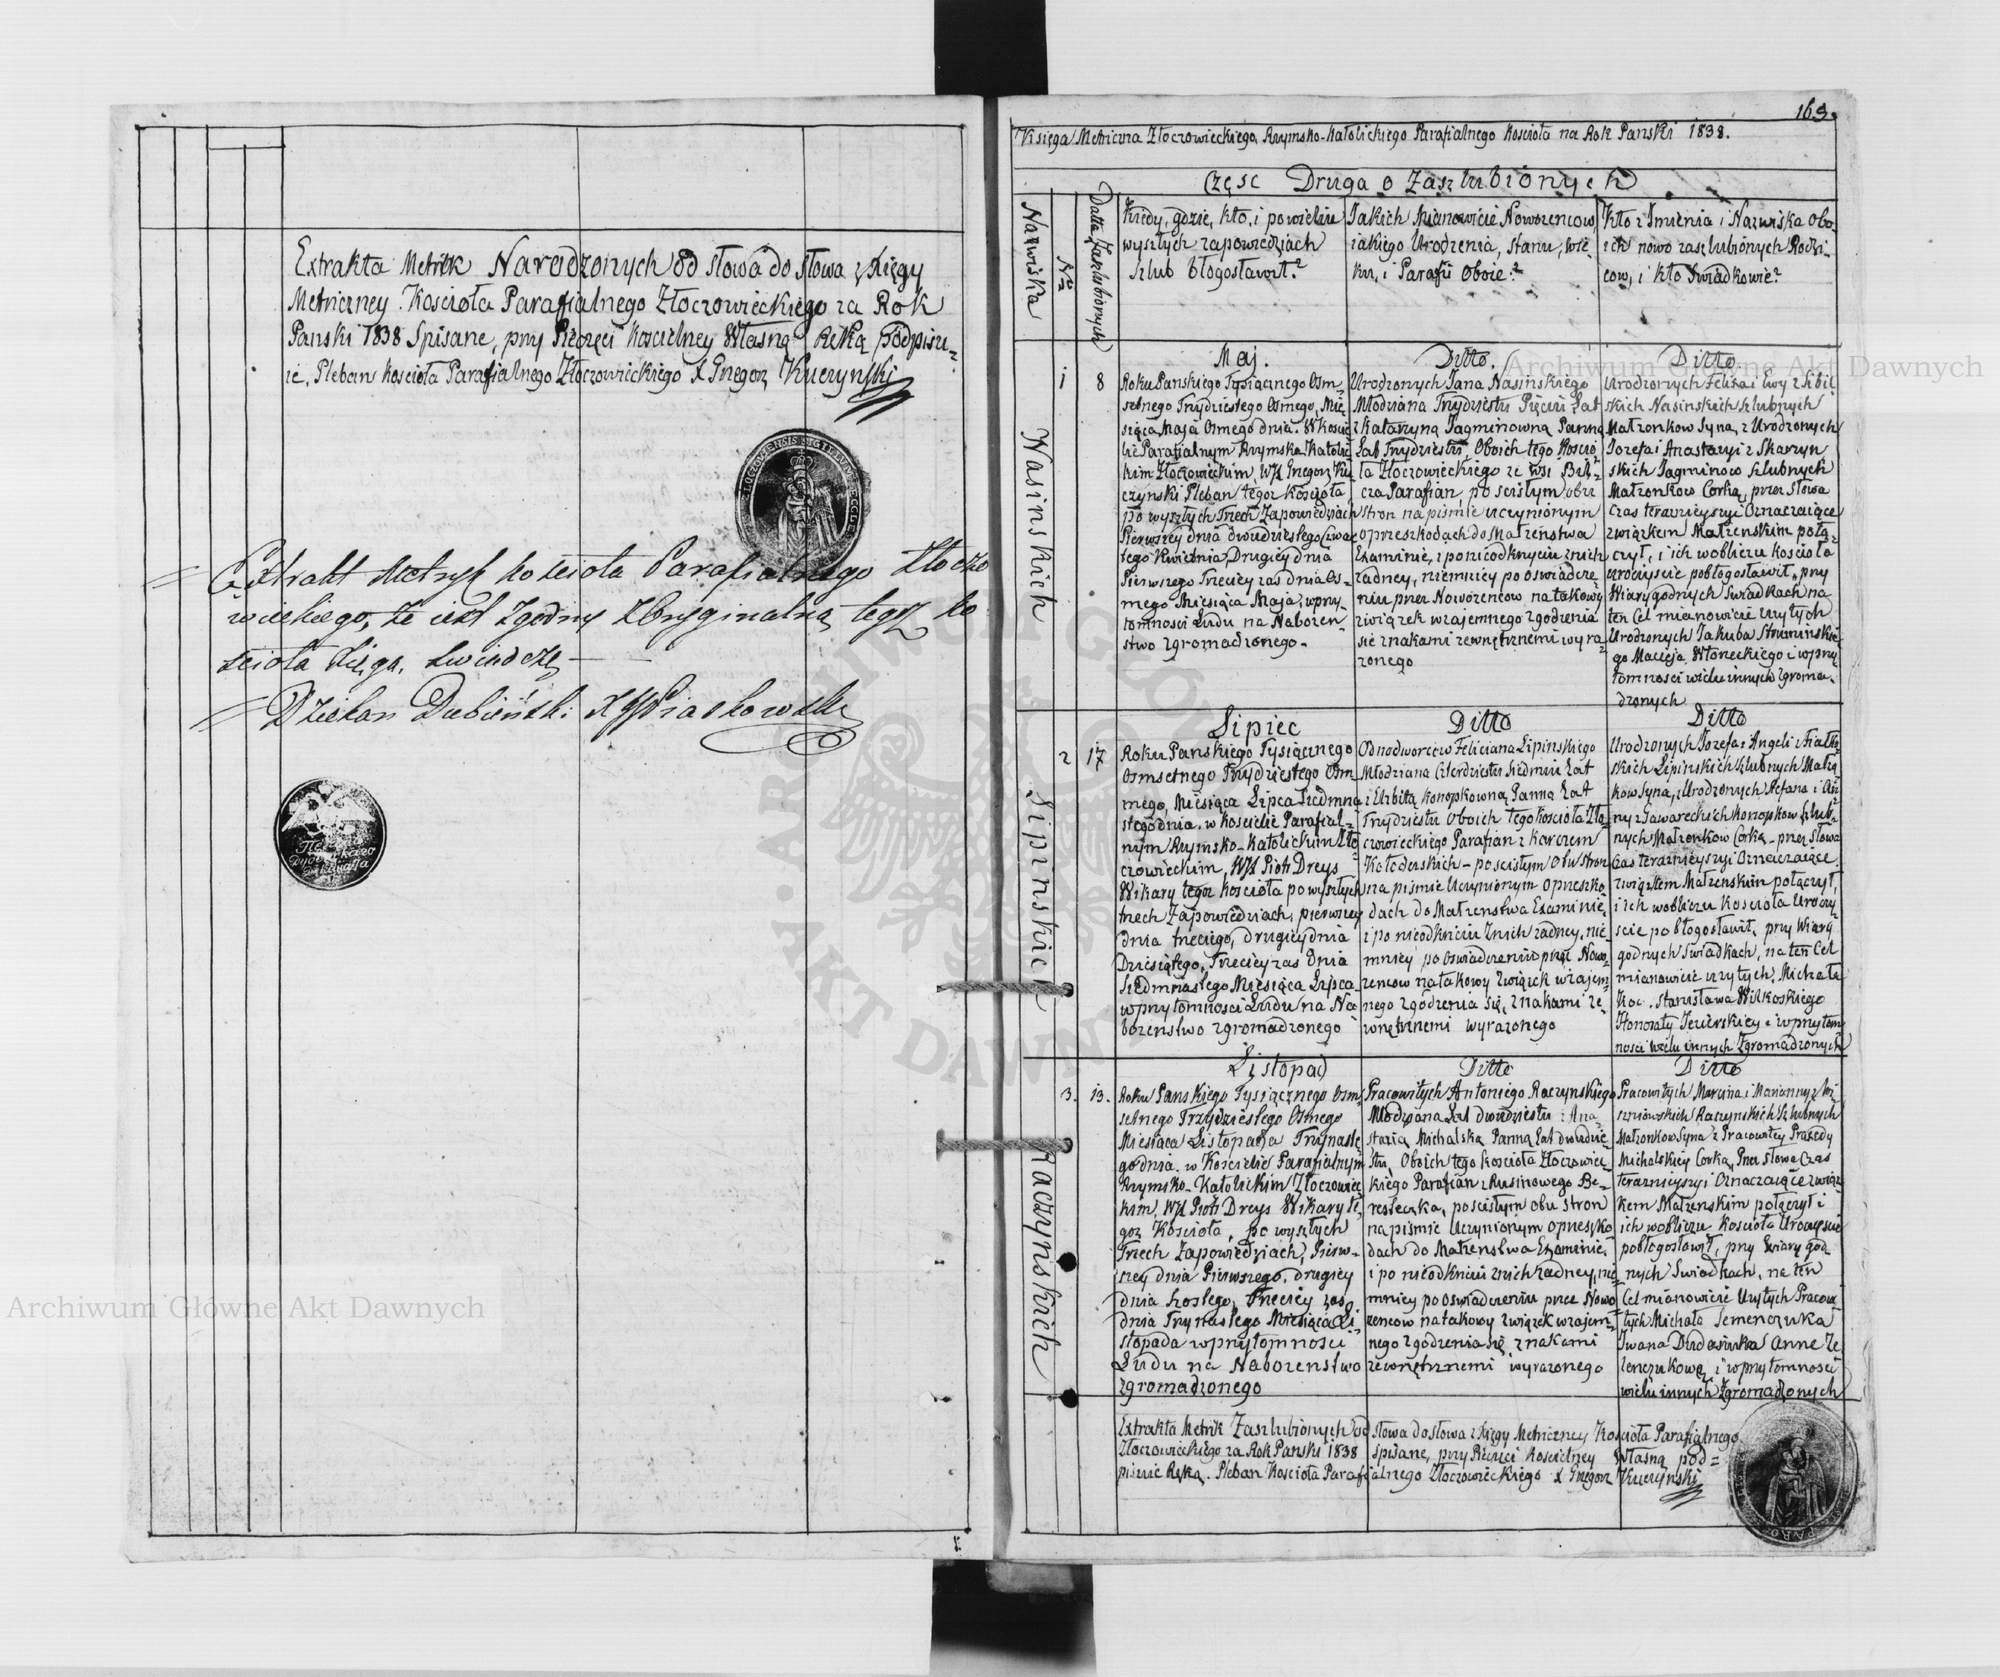 Extrakta Metrik Narodzonych od słowa do słowa z Księgy
Metriczney Kościoła Parafialnego Złoczowieckiego za Rok
Panski 1838 Spisane, przy Pieczęci Kościelney Własną Ręką Podpisu-
ie, Pleban Kościoła Parafialnego Złoczowieckiego X Grzegorz Kuczynski
Extrakt Metryk Kościoła Parafialnego Złoczo
wieckiego, że iest zgodny z Oryginalną tegoż Ko
ścioła Xięgą, świadczę
Dziekan Dubieński X Piaskowski
163.
Księga Metriczna Złoczowieckiego, Rzymsko-Katolickiego Parafialnego Kościoła na Rok Panski 1838.
Częsc Druga o Zaszlubionych
Nazwiska
Nro
Datta Zaszlubionych
Kiedy, gdzie, kto, i po wielu
wyszłych zapowiedziach
szlub błogosławił?
Jakich Mianowicie Nowozencow,
iakiego Urodzenia, stanu, wie-
ku, i Parafii Oboie?
Kto z Imienia i Nazwiska Obo-
ich nowo zaszlubionych Rodzi-
cow, i kto Swiadkowie?
Nasinskich
1
8
Maj.
Roku Panskiego Tysiącznego Osm-
setnego Trzydziestego Osmego, Mie-
siąca Maja Osmego dnia. W Koscie-
le Parafialnym Rzymsko Katolic-
kim Złoczowieckim, WX Grzegorz Ku-
czynski Pleban tegoz Kościoła,
po wyszłych Trzech Zapowiedziach
Pierwszey dnia dwudziestego czwar-
tego Kwietnia, Drugiey dnia
Pierwszego Trzeciey zas dnia Os-
mego Miesiąca Maja, w przy-
tomnosci Ludu na Nabozen-
stwo zgromadzonego.
Ditto.
Urodzonych Jana Nasinskiego
Młodziana Trzydziestu Pięciu Lat
z Katarzyną Jagminowną Panną
Lat Trzydziestu, Oboich tego Koscio-
ła Złoczowieckiego ze wsi Bil-
cza Parafian, po scisłym obu
stron na pismie uczynionym
o przeszkodach do Małzenstwa
Examinie, i po nieodkryciu z nich
zadney, niemniey po oswiadcze-
niu przez Nowozencow na takowy
związek wzajemnego zgodzenia
sie znakami zewnętrznemi wyra-
zonego
Ditto
Urodzonych Felixa i Ewy z Sibil-
skich Nasinskich szlubnych
Małzonkow Syna, z Urodzonych
Jozefa i Anastazyi z Skarzyn
skich Jagminow szlubnych
Małzonkow Corką, przez słowa
czas teraznieyszyi Oznaczaiące
związkiem Małzenskim połą-
czył, i ich w obliczu Koscioła
uroczyscie pobłogosławił, przy
Wiary godnych Swiadkach na
ten Cel mianowicie uzytych
Urodzonych Jakuba Strumińskie-
go Macieja Włoneckiego i w przy-
tomnosci wielu innych zgroma-
dzonych
Lipinskich
2
17
Lipiec
Roku Panskiego Tysiącznego
Osmsetnego Trzydziestego Osm
mego, Miesiąca Lipca Siedmna
stego dnia, w Kosciele Parafial-
nym Rzymsko-Katolickim Zło-
czowieckim, WX Piotr Dreys
Wikary tegoz Kościoła po wyszłych
trzech Zapowiedziach, pierwszey
dnia trzeciego, drugiey dnia
Dziesiątego, Trzeciey zas dnia
Siedmnastego Miesiąca Lipca
w przytomnosci Ludu na Na
bozenstwo zgromadzonego
Ditto
Odnodworcow Feliciana Lipinskiego
Młodziana Czterdziestu Siedmiu Lat
z Elzbietą Konopkowną Panną Lat
Trzydziestu Oboich tego Kościoła Zło-
czowieckiego Parafian z Karczem
Kałoderskich - po scisłym Obu Stron
na pismie Uczynionym o przeszko-
dach do Małzenstwa Examinie,
i po nieodkriciu z nich zadney, nie-
mniey po oswiadczeniu przez Nowo-
zencow na takowy związek wzajem-
nego zgodzenia się, znakami ze-
wnętrznemi wyrazonego
Ditto
Urodzonych Jozefa i Angeli z Fiałko-
skich Lipinskich szlubnych Małzą
kow Syna, z Urodzonych Stefana i An-
ny z Sawareckich Konopkow szlub-
nych Małzonkow Corką - przez słowa
Czas teraznieyszyi Oznaczaiące
związkiem Małzenskim połączył,
i ich w obliczu Kościoła Uroczy-
scie pobłogosławił, przy Wiary
godnych Swiadkach, na ten Cel
mianowicie uzytych, Michała
Koc. Stanisława Wilkoskiego
Honoraty Jezierskiey i w przytom
nosci wielu innych Zgromadzonych
Raczynskich
3.
13.
Listopad
Roku Panskiego Tysiącznego Osm-
setnego Trzydziestego Osmego
Miesiąca Listopada Trzynaste
go dnia, w Kosciele Parafialnym
Rzymsko-Katolickim Złoczowiec
kim, WX Piotr Dreys Wikary te-
goz Kościoła, po wyszłych
Trzech Zapowiedziach, Pierw-
szey dnia Pierwszego, drugiey
dnia szostego, Trzeciey zas
dnia Trzynastego Miesiąca Li-
stopada w przytomnosci
Ludu na Nabozenstwo
zgromadzonego
Ditto
Pracowitych Antoniego Raczynskiego
Młodziana Lat Dwudziestu i Ana-
stazią Michalską Panną Lat dwudzie-
stu, Oboich tego kościoła Złoczowiec-
kiego Parafian z Rusinowego Be-
resteczka, po scisłym obu stron
na pismie Uczynionym o przeszko-
dach do Małzenstwa Examinie,
i po nieodkriciu z nich zadney, nie
mniey po oswiadczeniu przez Nowo
zencow na takowy związek wzajem-
nego zgodzenia się znakami
zewnętrznemi wyrazonego
Ditto
Pracowitych Marcina i Marianny z Wi-
szniowskich Raczynskich szlubnych
Małzonkow Syna z Pracowitey Praxedy
Michalskiey Corką, Przez Słowa Czas
teraznieyszyi Oznaczaiące związ-
kem Małzenskim połączył i
ich w obliczu Kościoła Uroczyscie
pobłogosławił, przy Wiary god
nych Swiadkach, na ten
Cel mianowicie Uzytych Pracowi-
tych Michała Semenczuka
Iwana Dudasiuka Anne Ze
lenczukowę i w przytomnosci
wielu innych Zgromadzonych
Extrakta Metrik Zaszlubionych od słowa do słowa z Xięgy Metriczney Kościoła Parafialnego
Złoczowieckiego za Rok Panski 1838 spisane, przy Pieczęci Koscielney Własną pod-
pisuie Ręką. Pleban Kościoła Parafialnego Złoczowieckiego X Grzegorz Kuczynski
Archiwum Główne Akt Dawnych
Archiwum Główne Akt Dawnych
ARCHIWUM GŁÓWNE · AKT DAWNYCH